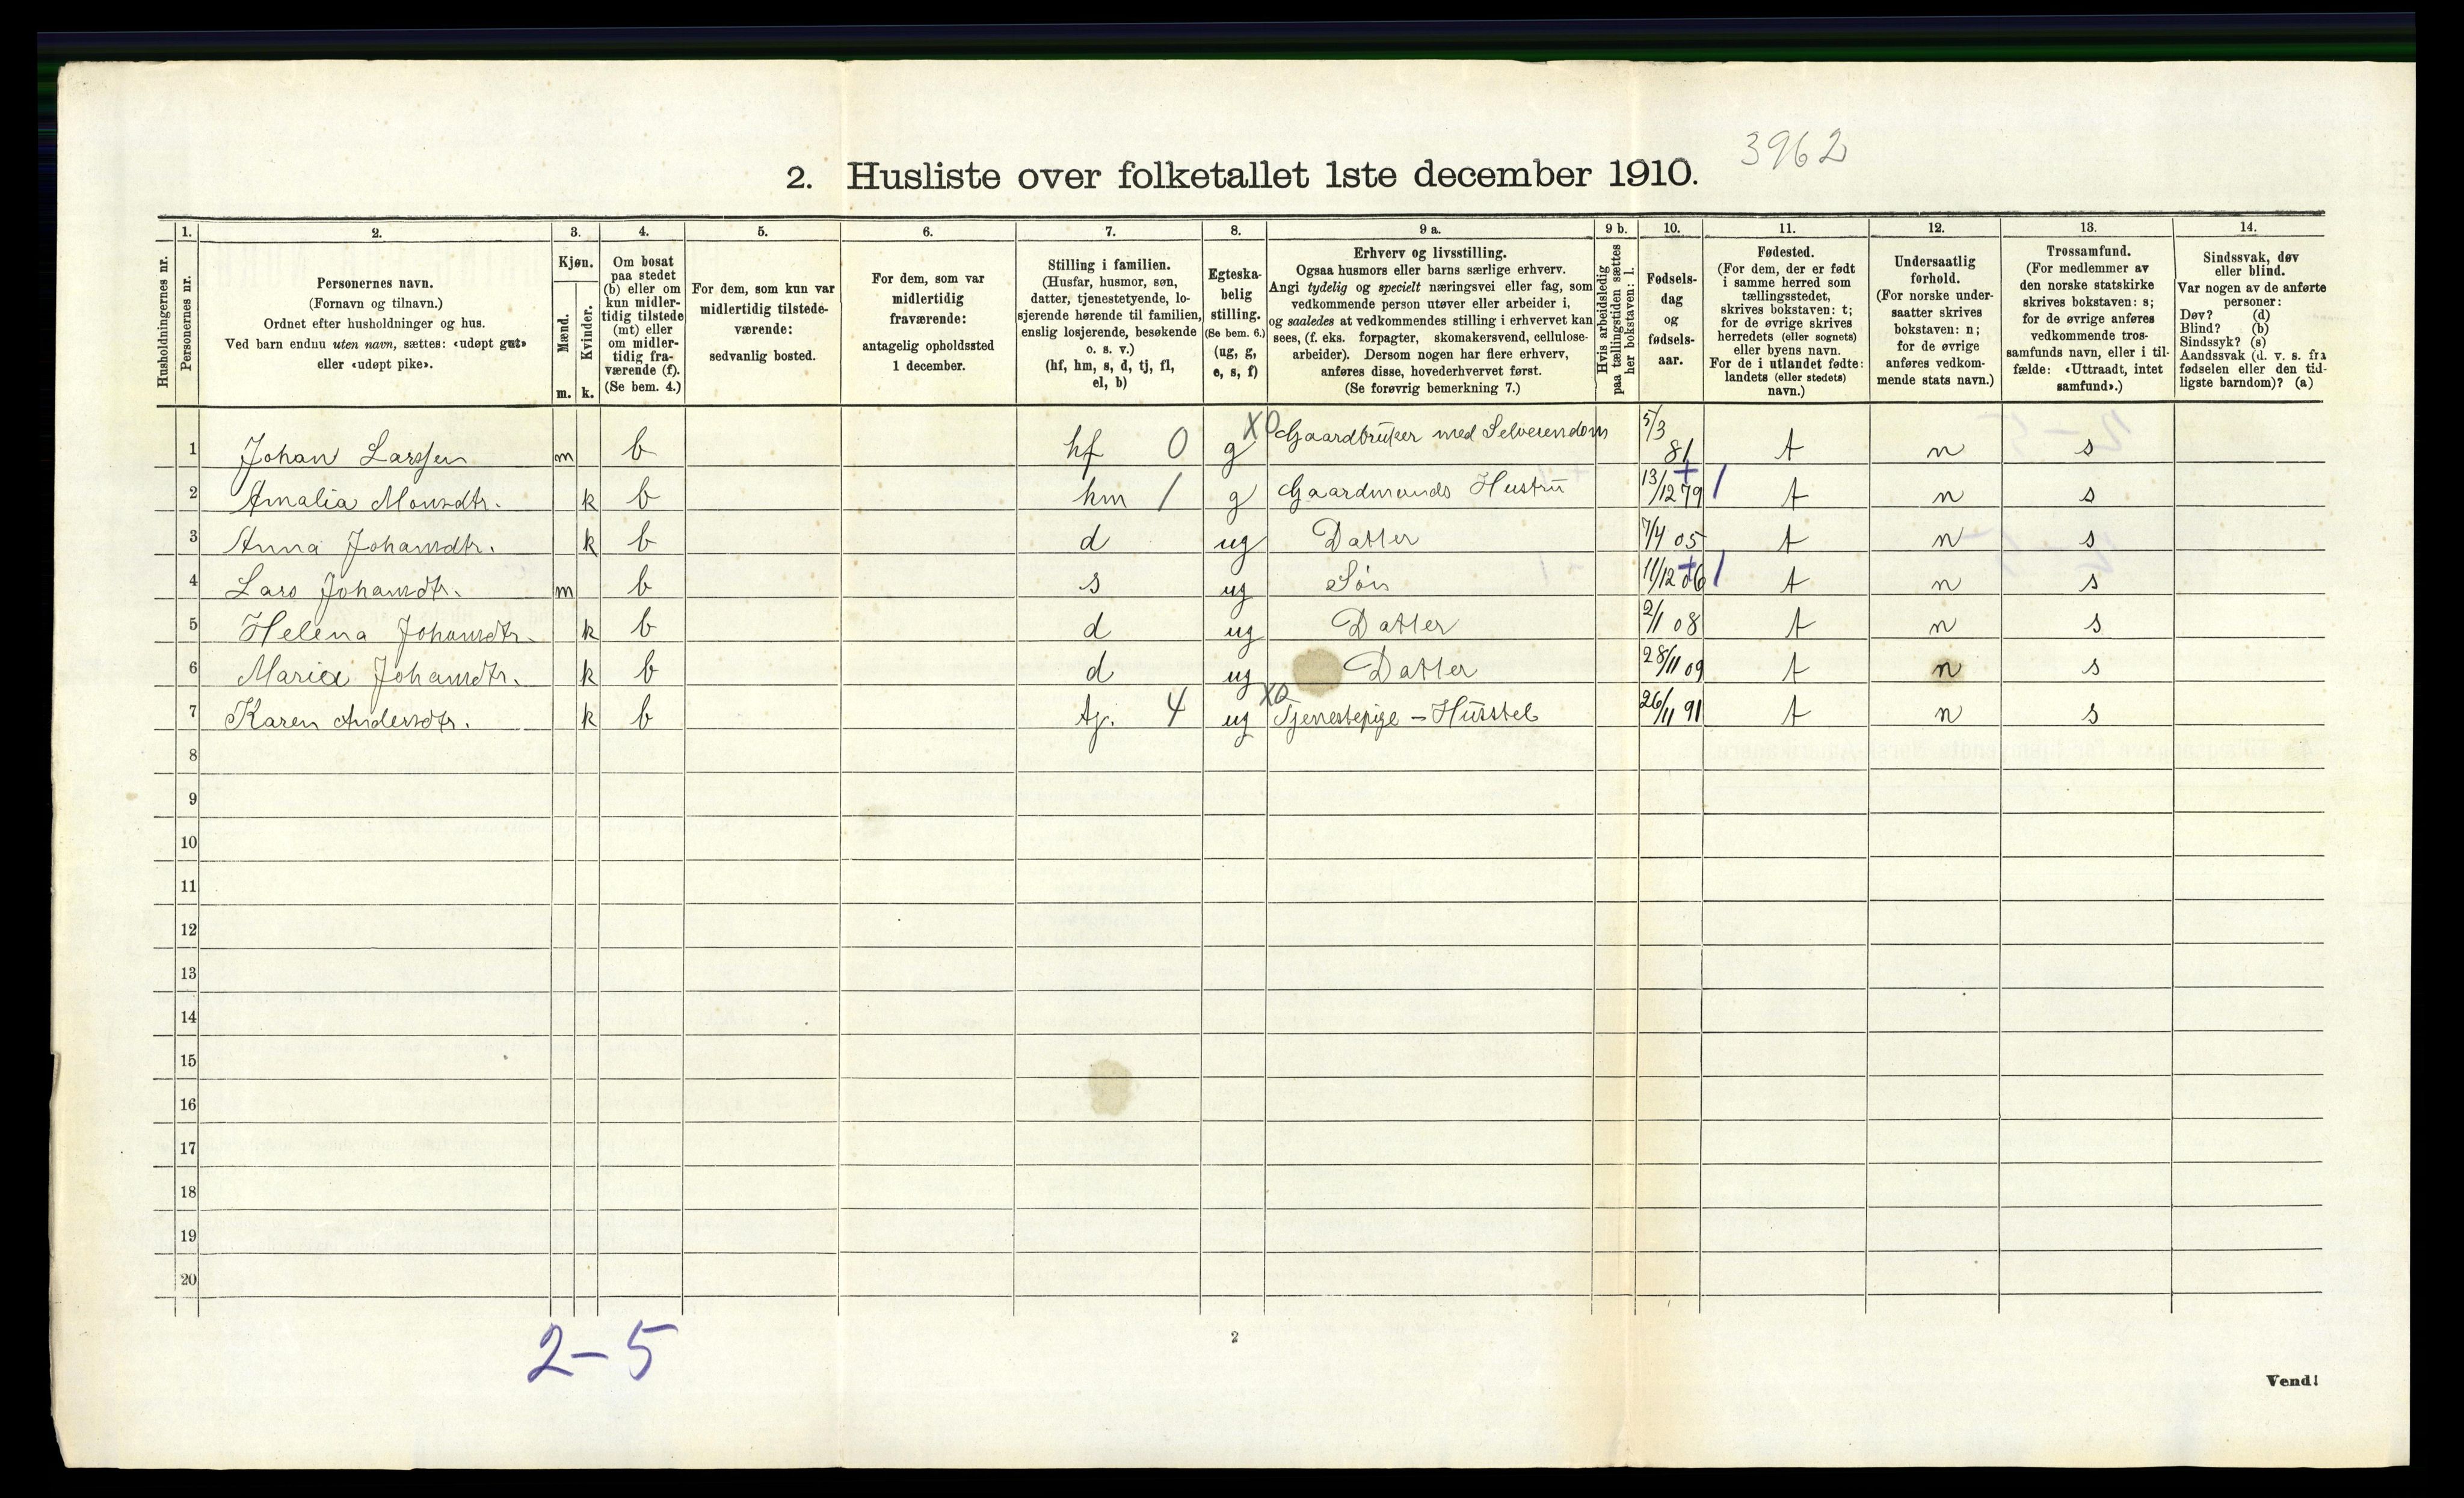 3962
2. Husliste over folketallet 1ste december 1910.
Husholdningernes nr.
1.
Personernes nr.
2.
Personernes navn.
(Fornavn og tilnavn.)
Ordnet efter husholdninger og hus.
Ved barn endnu uten navn, sættes: «udøpt gut»
eller «udøpt pike».
3.
Kjøn.
Mænd.
Kvinder.
m. k.
4.
Om bosat
paa stedet
(b) eller om
kun midler-
tidig tilstede
(mt) eller
om midler-
tidig fra-
værende (f).
(Se bem. 4.)
5.
For dem, som kun var
midlertidig tilstede-
værende:
sedvanlig bosted.
6.
For dem, som var
midlertidig
fraværende:
antagelig opholdssted
1 december.
7.
Stilling i familien.
(Husfar, husmor, søn,
datter, tjenestetyende, lo-
sjerende hørende til familien,
enslig losjerende, besøkende
o. s. v.)
(hf, hm, s, d, tj, fl,
el, b)
8.
Egteska-
belig
stilling.
(Se bem. 6.)
(ug, g,
e, s, f)
9 a.
Erhverv og livsstilling.
Ogsaa husmors eller barns særlige erhverv.
Angi tydelig og specielt næringsvei eller fag, som
vedkommende person utøver eller arbeider i,
og saaledes at vedkommendes stilling i erhvervet kan
sees, (f. eks. forpagter, skomakersvend, cellulose-
arbeider). Dersom nogen har flere erhverv,
anføres disse, hovederhvervet først.
(Se forøvrig bemerkning 7.)
9 b.
Hvis arbeidsledig
paa tællingstiden sættes
her bokstaven: l.
10.
Fødsels-
dag
og
fødsels-
aar.
11.
Fødested.
(For dem, der er født
i samme herred som
tællingsstedet,
skrives bokstaven: t;
for de øvrige skrives
herredets (eller sognets)
eller byens navn.
For de i utlandet fødte:
landets (eller stedets)
navn.)
12.
Undersaatlig
forhold.
(For norske under-
saatter skrives
bokstaven: n;
for de øvrige
anføres vedkom-
mende stats navn.)
13.
Trossamfund.
(For medlemmer av
den norske statskirke
skrives bokstaven: s;
for de øvrige anføres
vedkommende tros-
samfunds navn, eller i til-
fælde: «Uttraadt, intet
samfund».)
14.
Sindssvak, døv
eller blind.
Var nogen av de anførte
personer:
Døv? (d)
Blind? (b)
Sindssyk? (s)
Aandssvak (d. v. s. fra
fødselen eller den tid-
ligste barndom)? (a)
1 Johan Larssen m b hf 0 g X0 Gaardbruker med Selveiendom 5/3 81 t n s
2 Amalia Monsdtr. k b hm 1 g Gaardmands Hustru 13/12 79 + / t n s
3 Anna Johansdtr. k b d ug Datter 7/4 05 t n s
4 Lars Johansdtr. m b s ug Søn 11/12 06 + / t n s
5 Helena Johansdtr. k b d ug Datter 2/1 08 t n s
6 Maria Johansdtr. k b d ug Datter 28/11 09 t n s
7 Karen Andersdtr. k b tj. 4 ug X0 Tjenestepige - Husstel 26/11 91 t n s
8
9
10
11
12
13
14
15
16
17
18
19
20
2-5
2
Vend!